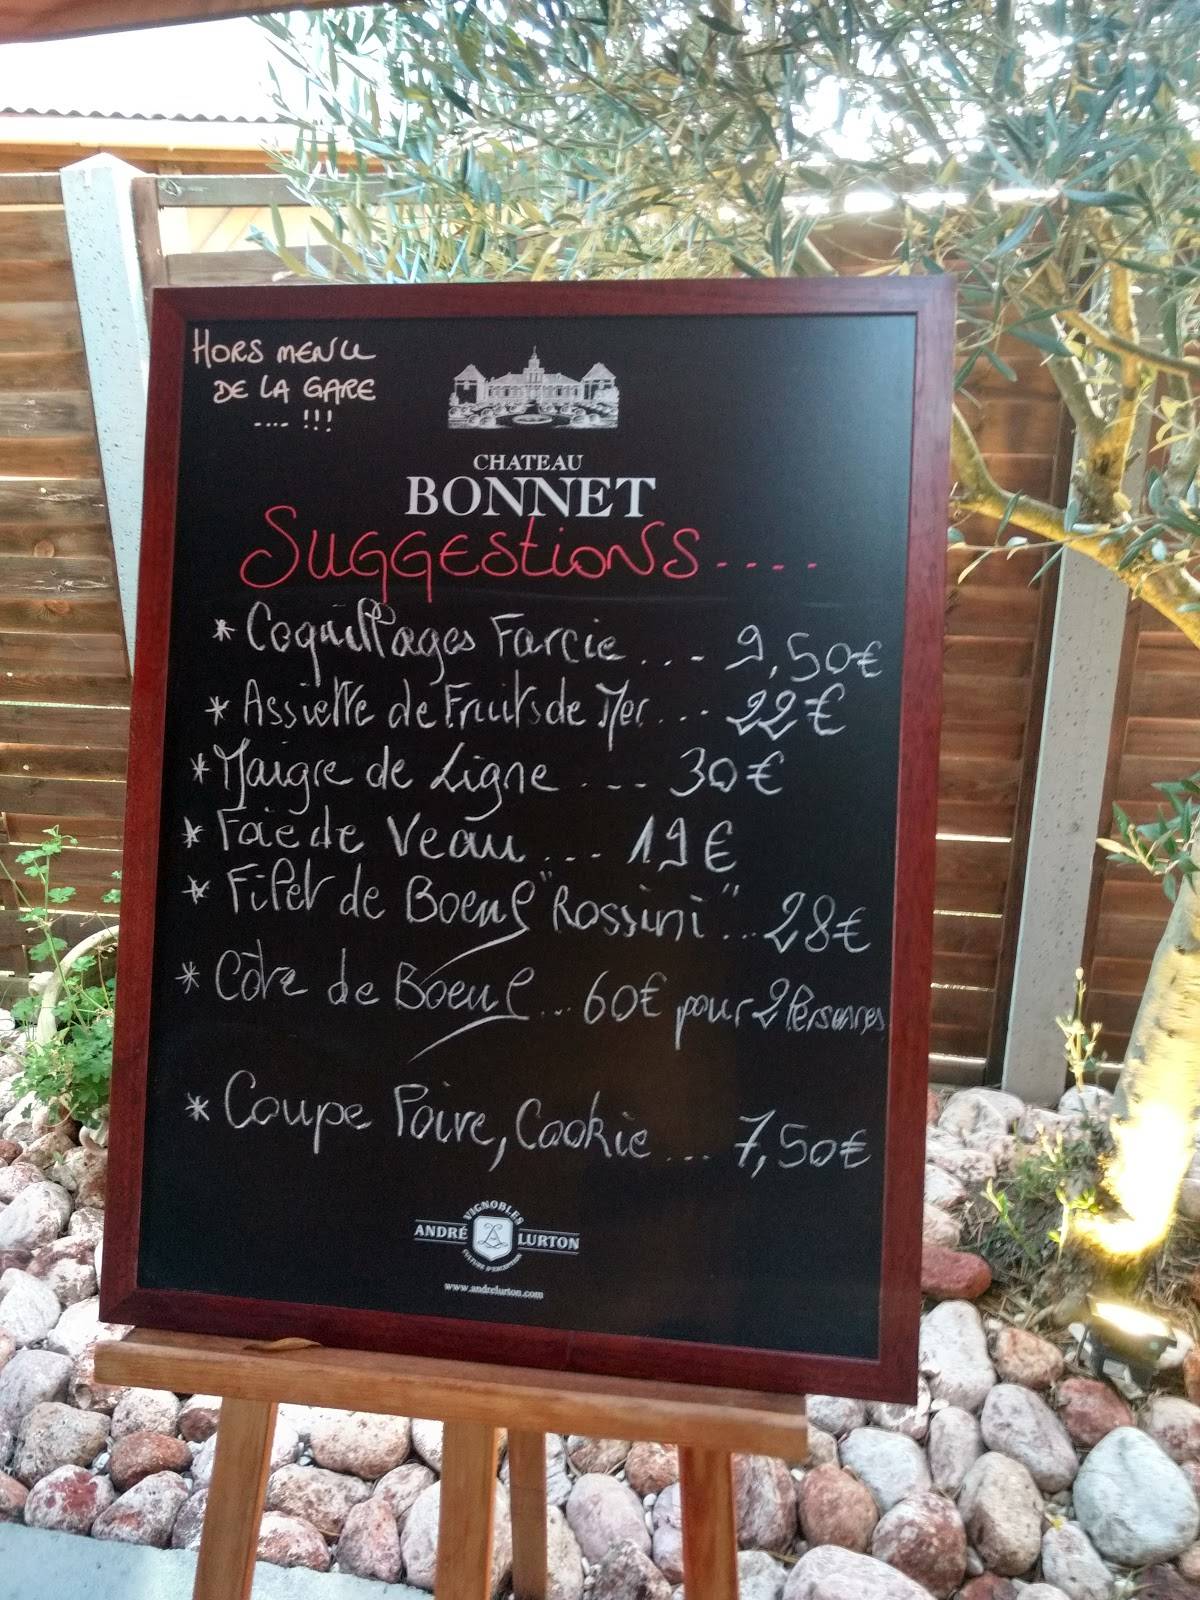 HORS MENU
DE LA GARE
.... !!!
CHATEAU
BONNET
SUGGEStIONS....
* Coquillages Farcie... - 9,50€
* Assiette de Fruits de Mer... - 22€
* Maigre de Ligne . . -- 30€
* Foie de Veau... 19€
* Filet de Boeuf "Rossini"... 28€
* Côte de Boeuf... 60€ pour 2 Personnes
* Coupe Poire, Cookie... 7,50€
VIGNOBLES
ANDRÉ LURTON
CULTURE D'EXCEPTION
www.andrelurton.com